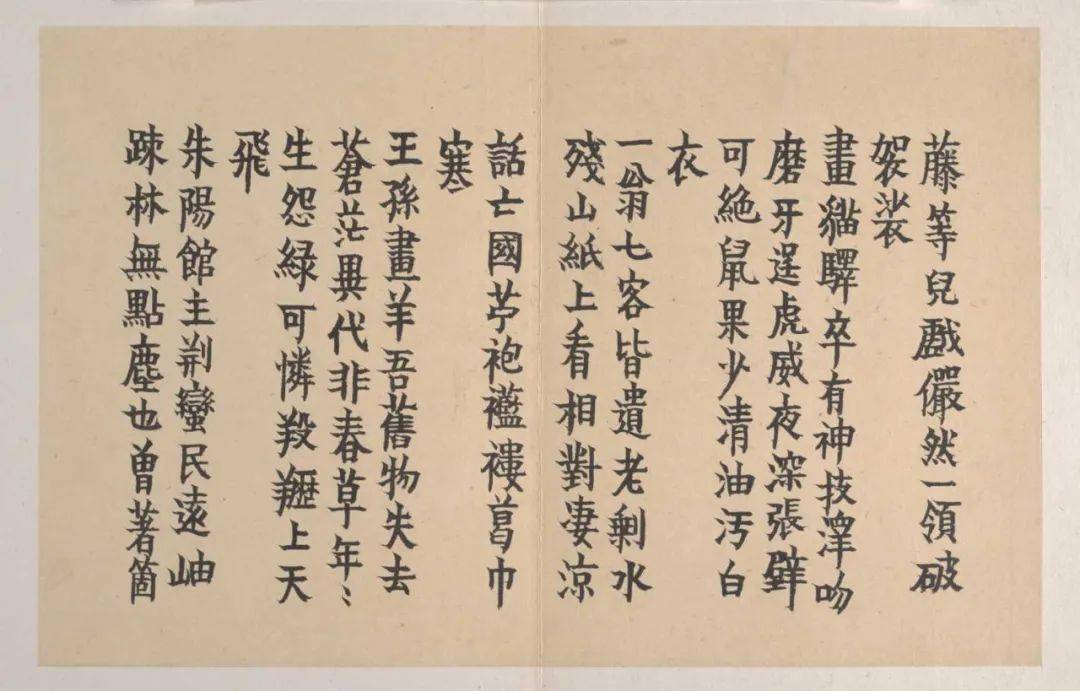 藤等兒戲儼然一領破
袈裟
畫貓驛卒有神技澤吻
磨牙逞虎威夜深張壁
可絶鼠果少清油汚白
衣
一翁七客皆遺老剩水
殘山紙上看相對淒涼
話亡國芧袍襤褸葛巾
寒
王孫畫羊吾舊物失去
蒼茫異代非春草年〻
生怨緑可憐羖䍽上天
飛
朱陽館主荆蠻民遠岫
疎林無點塵也曾著箇